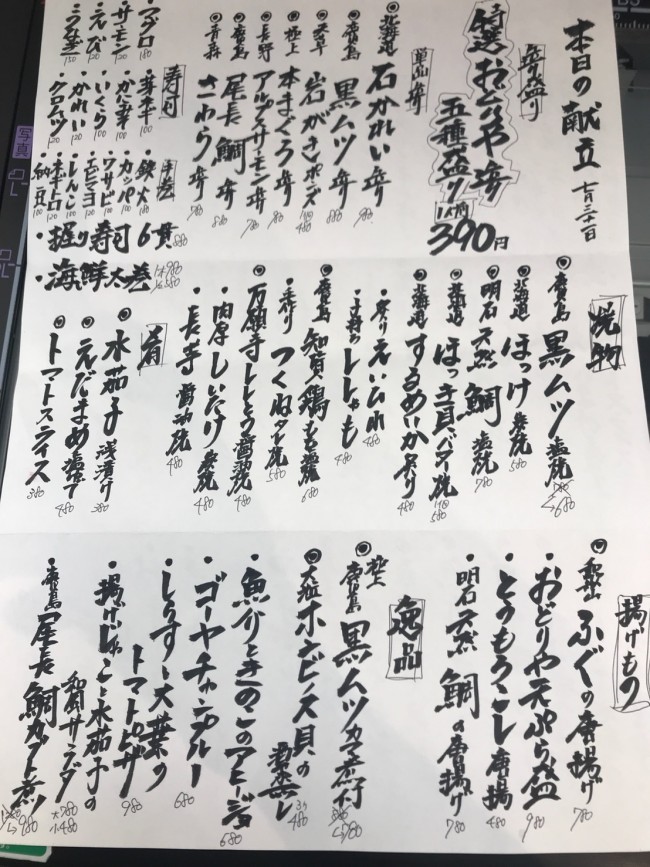 本日の献立 七月二十一日
造り盛り
特選 おどりや造
五種盛り
1人前
390円
単品造
◎北海道 石かれい造 980
◎鹿児島 黒ムツ造 880
岩がきポン酢 1コ 480
◎極上 本まぐろ造 880
◎長野 アルプスサーモン造 780
◎鹿児島 尾長鯛造 880
◎青森 さわら造 780
寿司
・マグロ 180
・サーモン 120
・えび 120
・うなぎ 150
・かに 100
・いくら 100
・かれい 100
・クロムツ 120
手巻
・鉄火 180
・カッパ 100
・ワサビ 100
・エビマヨ 120
・しんこ 100
・ネギトロ 120
・納豆 100
・握り寿司 6貫 880
・海鮮太巻 1本 980 1/2 580
焼物
◎鹿児島 黒ムツ塩焼 680
◎北海道 ほっけ 580
◎明石 天然 鯛 塩焼 780
◎北海道 ほっき貝バター焼 1コ 580
◎北海道 するめいか炙り 480
・炙りえいひれ 480
・子持ちししゃも 480
◎鹿児島 知覧鶏もも塩焼 680
・手作り つくねタレ焼 580
・万願寺ししとう醤油焼 480
・肉厚しいたけ 480
・長芋 醤油焼 480
肴
◎水茄子 浅漬け 380
◎えだまめ 塩ゆで 480
◎トマトスライス 380
揚げもの
◎和歌山 ふぐの唐揚げ 780
・おどりや天ぷら盛 980
・とうもろこし唐揚 480
・明石 天然 鯛の唐揚げ 780
逸品
◎極上 鹿児島 黒ムツカマ煮付 780
◎大粒 ホンビノス貝の
酒蒸し 3コ 480
・魚介ときのこのアヒージョ 680
・ゴーヤチャンプルー 680
・しらすと大葉の
トマトピザ 980
・揚げじゃこと水茄子の
和風サラダ 大780 小480
・鹿児島 尾長鯛カブト煮 980